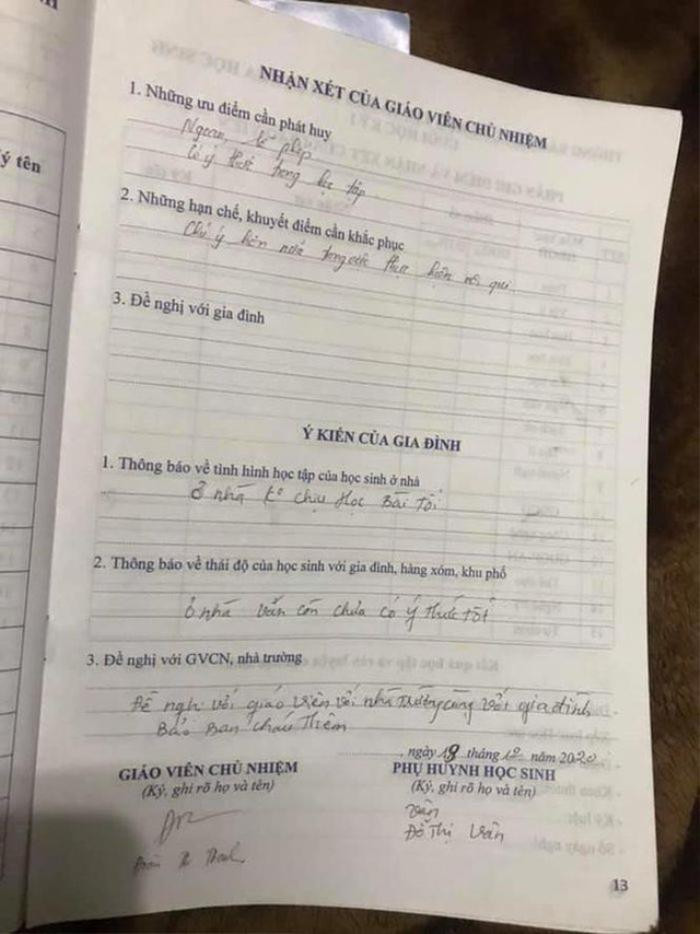 ý tên
NHẬN XÉT CỦA GIÁO VIÊN CHỦ NHIỆM
1. Những ưu điểm cần phát huy
Ngoan, lễ phép
Có ý thức trong học tập
2. Những hạn chế, khuyết điểm cần khắc phục
Chú ý hơn nữa trong việc thực hiện nội qui
3. Đề nghị với gia đình
Ý KIẾN CỦA GIA ĐÌNH
1. Thông báo về tình hình học tập của học sinh ở nhà
Ở nhà ko chịu Học Bài Tối
2. Thông báo về thái độ của học sinh với gia đình, hàng xóm, khu phố
Ở nhà vẫn còn chưa có ý thức Tốt
3. Đề nghị với GVCN, nhà trường
Đề nghị với giáo viên với nhà Trường cùng với gia đình
Bảo Ban cháu Thêm
, ngày 18 tháng 12 năm 2020
GIÁO VIÊN CHỦ NHIỆM
(Ký, ghi rõ họ và tên)
PHỤ HUYNH HỌC SINH
(Ký, ghi rõ họ và tên)
Vân
Đỗ Thị Vân
13